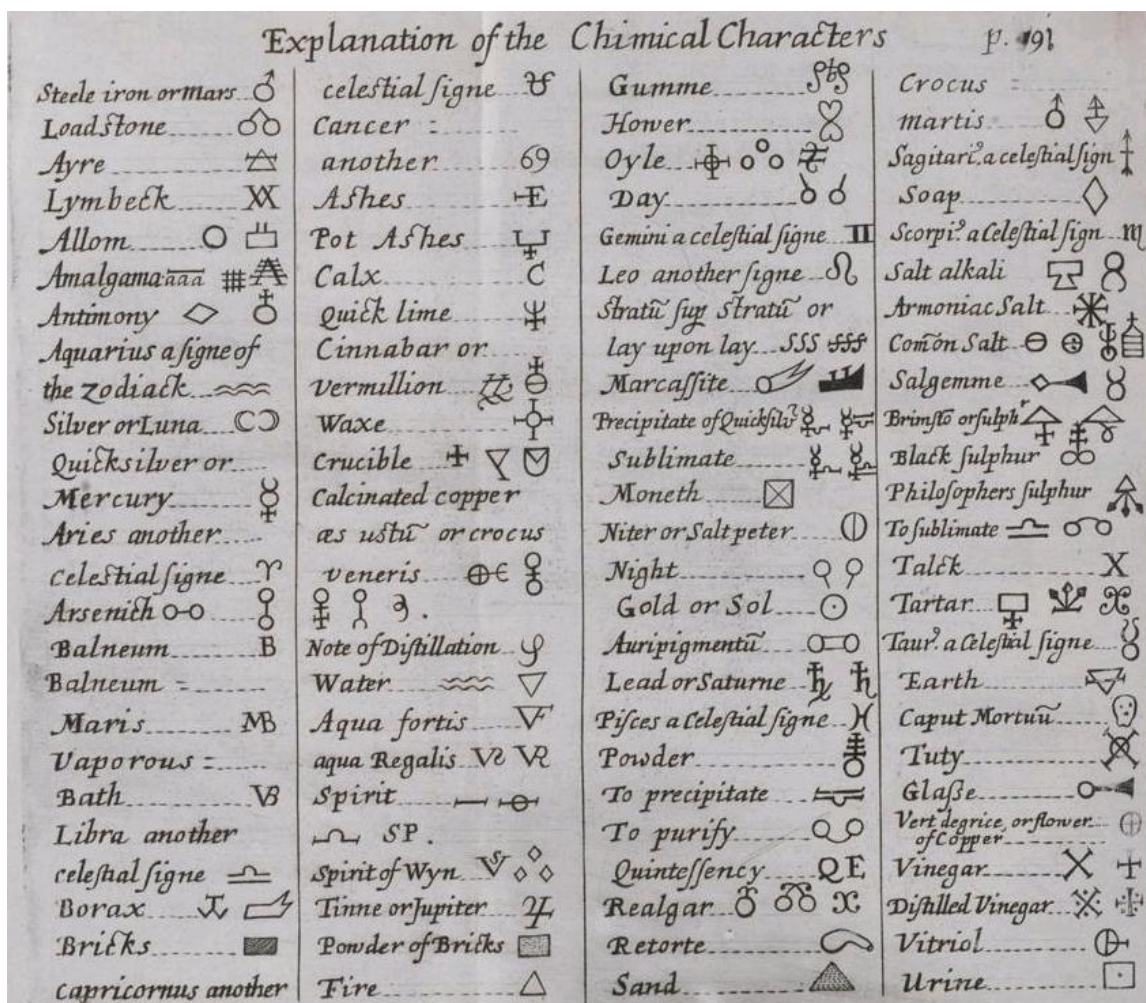 Explanation of the Chimical Characters p. 191
Steele iron or mars
Loadstone
Ayre
Lymbeck
Allom
Amalgama aaa
Antimony
Aquarius a signe of
the zodiack
Silver or Luna
Quicksilver or
Mercury
Aries another
celestial signe
Arsenich
Balneum B
Balneum =
Maris MB
Vaporous =
Bath VB
Libra another
celestial signe
Borax
Bricks
capricornus another
celestial signe
Cancer =
another 69
Ashes E
Pot Ashes
Calx C
Quick lime
Cinnabar or
vermillion
Waxe
Crucible
Calcinated copper
æs ustū or crocus
veneris
Note of Distillation
Water
Aqua fortis VF
aqua Regalis VR
Spirit
SP.
Spirit of Wyn
Tinne or Jupiter
Powder of Bricks
Fire
Gumme
Hower
Oyle
Day
Gemini a celestial signe
Leo another signe
Stratū sup stratū or
lay upon lay SSS SSS
Marcassite
Precipitate of Quicksilv
Sublimate
Moneth
Niter or Salt peter
Night
Gold or Sol
Auripigmentū
Lead or Saturne
Pisces a Celestial signe
Powder
To precipitate
To purify
Quintessency QE
Realgar
Retorte
Sand
Crocus =
martis
Sagitari⁹ a celestial sign
Soap
Scorpi⁹ a Celestial sign
Salt alkali
Armoniac Salt
Comōn Salt
Salgemme
Brimsto or sulphr
Black sulphur
Philosophers sulphur
To sublimate
Talck X
Tartar
Taur⁹ a Celestial signe
Earth
Caput Mortuū
Tuty
Glasse
Vert degrice, or flower
of Copper
Vinegar
Distilled Vinegar
Vitriol
Urine